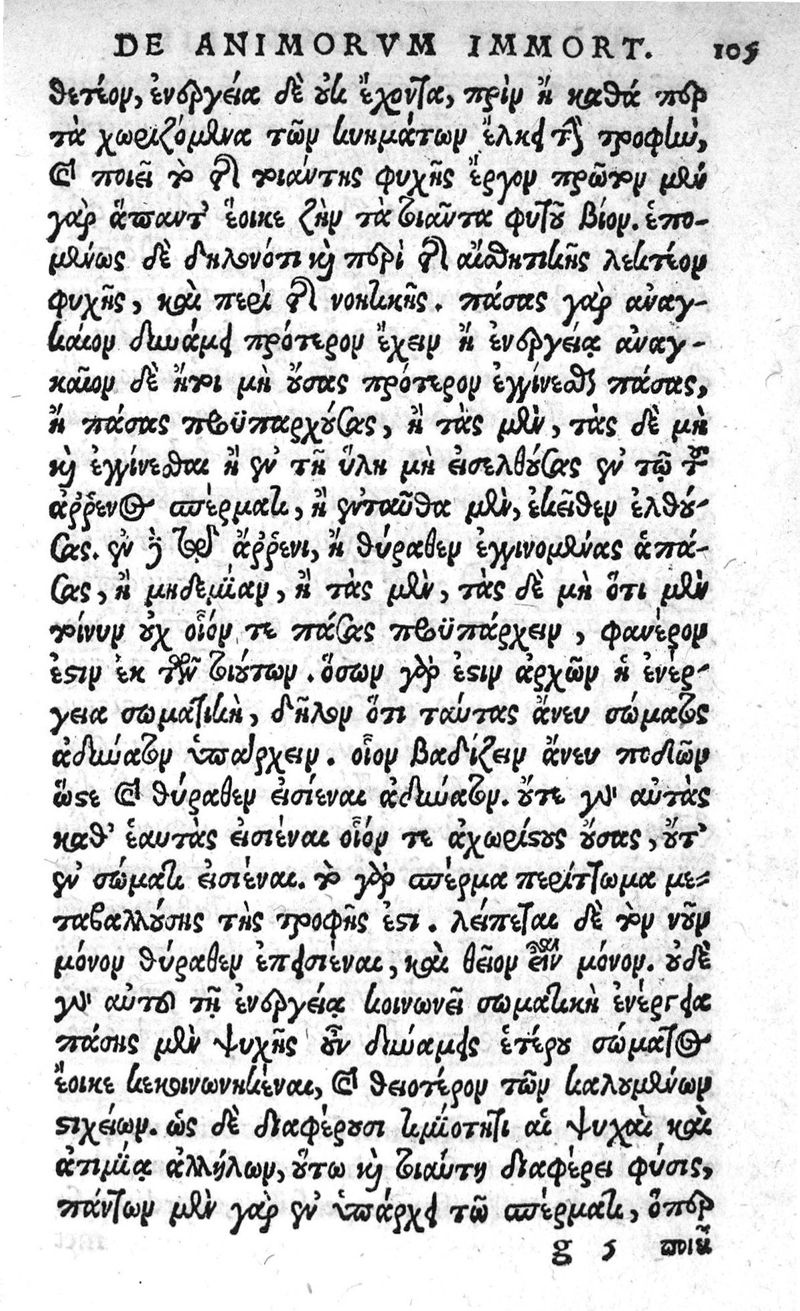 DE ANIMORVM IMMORT. 105
θετέον, ἐνεργεία δὲ οὐκ ἔχοντα, πρὶν ἢ καθάπερ
τὰ χωριζόμενα τῶν κυημάτων ἕλκει τὴν τροφὴν,
καὶ ποιεῖ τὸ τῆς τοιαύτης φυχῆς ἔργον πρῶτον μὲν
γὰρ ἅπαντ' ἔοικε ζῆν τὰ τοιαῦτα φυτοῦ βίον. ἑπο-
μένως δὲ δηλονότι καὶ περὶ τῆς αἰσθητικῆς λεκτέον
φυχῆς, καὶ περὶ τῆς νοητικῆς. πάσας γὰρ ἀναγ-
καῖον δυνάμει πρότερον ἔχειν ἢ ἐνεργείᾳ ἀναγ-
καῖον δὲ ἤτοι μὴ οὔσας πρότερον ἐγγίνεσθαι πάσας,
ἢ πάσας προϋπαρχούσας, ἢ τὰς μὲν, τὰς δὲ μὴ
καὶ ἐγγίνεσθαι ἢ ἐν τῇ ὕλῃ μὴ εἰσελθούσας ἐν τῷ τοῦ
ἀῤῥενος σπέρματι, ἢ ἐνταῦθα μὲν, ἐκεῖθεν ἐλθού-
σας. ἐν δὲ τῷ ἄῤῥενι, ἢ θύραθεν ἐγγινομένας ἁπά-
σας, ἢ μηδεμίαν, ἢ τὰς μὲν, τὰς δὲ μὴ ὅτι μὲν
τοίνυν οὐχ οἷόν τε πάσας προϋπάρχειν, φανερόν
ἐστιν ἐκ τῶν τοιούτων. ὅσων γάρ ἐστιν ἀρχῶν ἡ ἐνέρ-
γεια σωματικὴ, δῆλον ὅτι ταύτας ἄνευ σώματος
ἀδύνατον ὑπάρχειν. οἷον βαδίζειν ἄνευ ποδῶν
ὥστε καὶ θύραθεν εἰσιέναι ἀδύνατον. οὔτε γὰρ αὐτὰς
καθ' ἑαυτὰς εἰσιέναι οἷόν τε ἀχωρίστους οὔσας, οὔτ'
ἐν σώματι εἰσιέναι. τὸ γὰρ σπέρμα περίττωμα με-
ταβαλλούσης τῆς τροφῆς ἐστι. λείπεται δὲ τὸν νοῦν
μόνον θύραθεν ἐπεισιέναι, καὶ θεῖον εἶναι μόνον. οὐδὲ
γὰρ αὐτοῦ τῇ ἐνεργείᾳ κοινωνεῖ σωματικὴ ἐνέργεια
πάσης μὲν ψυχῆς οὖν δυνάμεις ἑτέρου σώματος
ἔοικε κεκοινωνηκέναι, καὶ θειοτέρον τῶν καλουμένων
στιχείων. ὡς δὲ διαφέρουσι τιμιότητι αἱ ψυχαὶ καὶ
ἀτιμίᾳ ἀλλήλων, οὕτω καὶ τοιαύτη διαφέρει φύσις,
πάντων μὲν γὰρ ἐν ὑπάρχει τῷ σπέρματι, ὅπερ
g 5 ποιεῖ